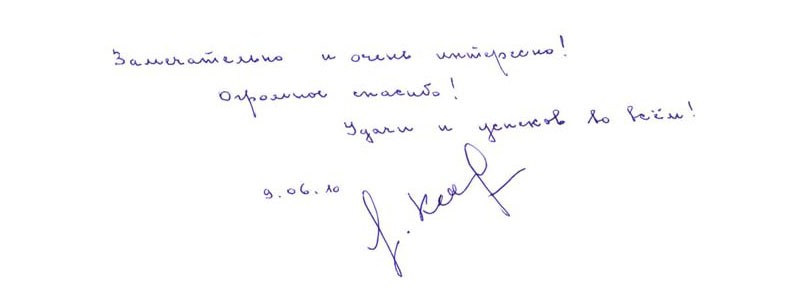 Замечательно и очень интересно!
Огромное спасибо!
Удачи и успехов во всём!
9.06.10